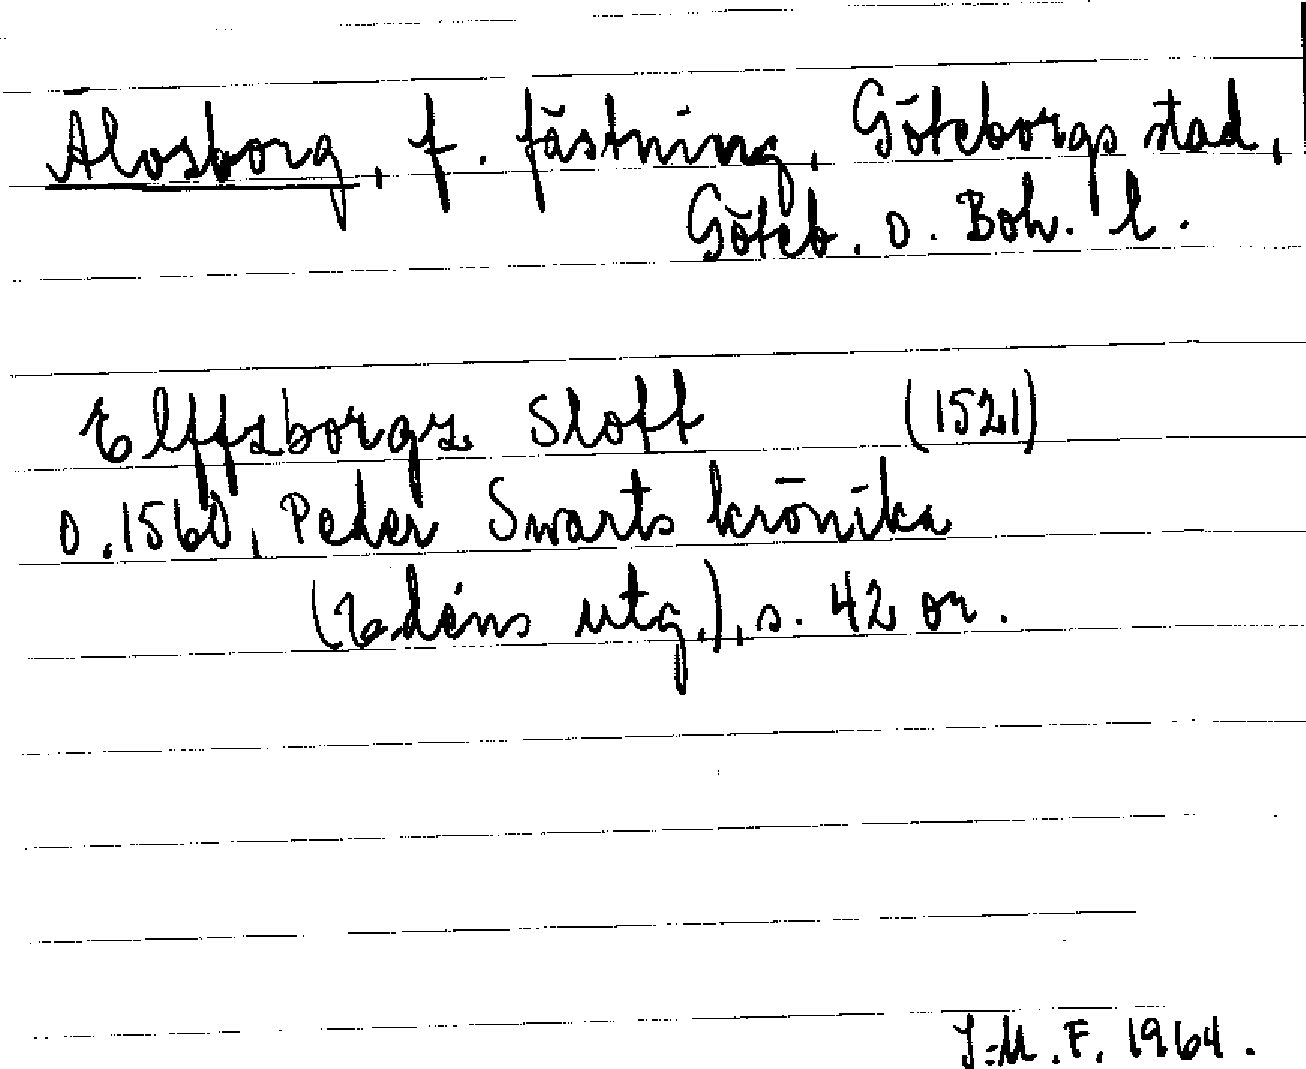 Älvsborg, f. fästning, Göteborgs stad,
Göteb. o. Boh. l.
Elffzborgz Slott (1521)
o. 1560, Peder Swarts krönika
(Edéns utg.), s. 42 or.
I-M. F. 1964.